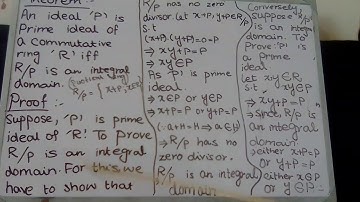 Theorem:-
An ideal 'P' is
Prime ideal of
a commutative
ring 'R' iff
R/P is an integral
domain.
R/P = {x+P, x∈R}
Proof:-
Suppose, 'P' is prime
ideal of 'R'. To prove
R/P is an integral
domain. For this we
have to show that
R/P has no zero
divisor. Let x+P, y+P∈R/P
s.t
(x+P)(y+P)=0=P
⇒ xy+P=P
⇒ xy∈P
As 'P' is prime
ideal.
⇒ x∈P or y∈P
⇒ x+P=P or y+P=P
(∵ a+H=H ⇒ a∈H)
⇒ R/P has no
zero divisor.
R/P is an integral
domain
Conversely,
suppose R/P
is an integral
domain. To
Prove 'P' is
a prime
ideal.
Let xy∈P,
x,y∈R
⇒ xy+P=P
⇒ Since, R/P is
an integral
domain.
either x+P=P
or y+P=P
either x∈P
or y∈P